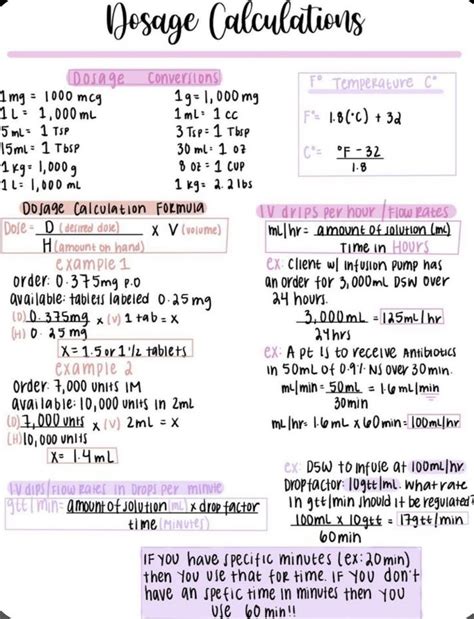 Dosage Calculations
Dosage Conversions
1mg = 1000 mcg
1L = 1,000mL
5mL = 1 TSP
15mL = 1 TbSP
1kg = 1,000g
1L = 1,000 mL
1g = 1,000mg
1mL = 1 cc
3 TSP = 1 TbSP
30 ml = 1 oz
8 oz = 1 CUP
1kg = 2.2lbs
F° Temperature C°
F° = 1.8(°C) + 32
C° = °F - 32
1.8
Dosage Calculation Formula
Dose = D (desired dose) x V (volume)
H (amount on hand)
example 1
order: 0.375mg P.O
available: tablets labeled 0.25mg
(D) 0.375mg x (V) 1 tab = X
(H) 0.25mg
X = 1.5 or 1 1/2 tablets
example 2
order: 7,000 units IM
available: 10,000 units in 2mL
(D) 7,000 units x (V) 2mL = X
(H) 10,000 units
X = 1.4mL
I.V drips per hour / Flow Rates
mL/hr = amount of solution (mL)
Time in HOURS
ex: Client w/ infusion pump has
an order for 3,000mL D5W over
24 hours.
3,000mL = 125mL/hr
24hrs
ex: A pt is to receive Antibiotics
in 50mL of 0.9% NS over 30min.
mL/min = 50mL = 1.6mL/min
30min
mL/hr = 1.6mL x 60min = 100mL/hr
I.V dips/Flow Rates in Drops per minute
gtt/min = amount of solution (mL) x drop factor
time (MINUTES)
ex: D5W to infuse at 100mL/hr
Drop factor: 10gtt/mL. What rate
in gtt/min should it be regulated?
100mL x 10gtt = 17gtt/min
60min
IF YOU have specific minutes (ex: 20min)
then you use that for time. IF YOU don't
have an spefic time in minutes then you
use 60min!!